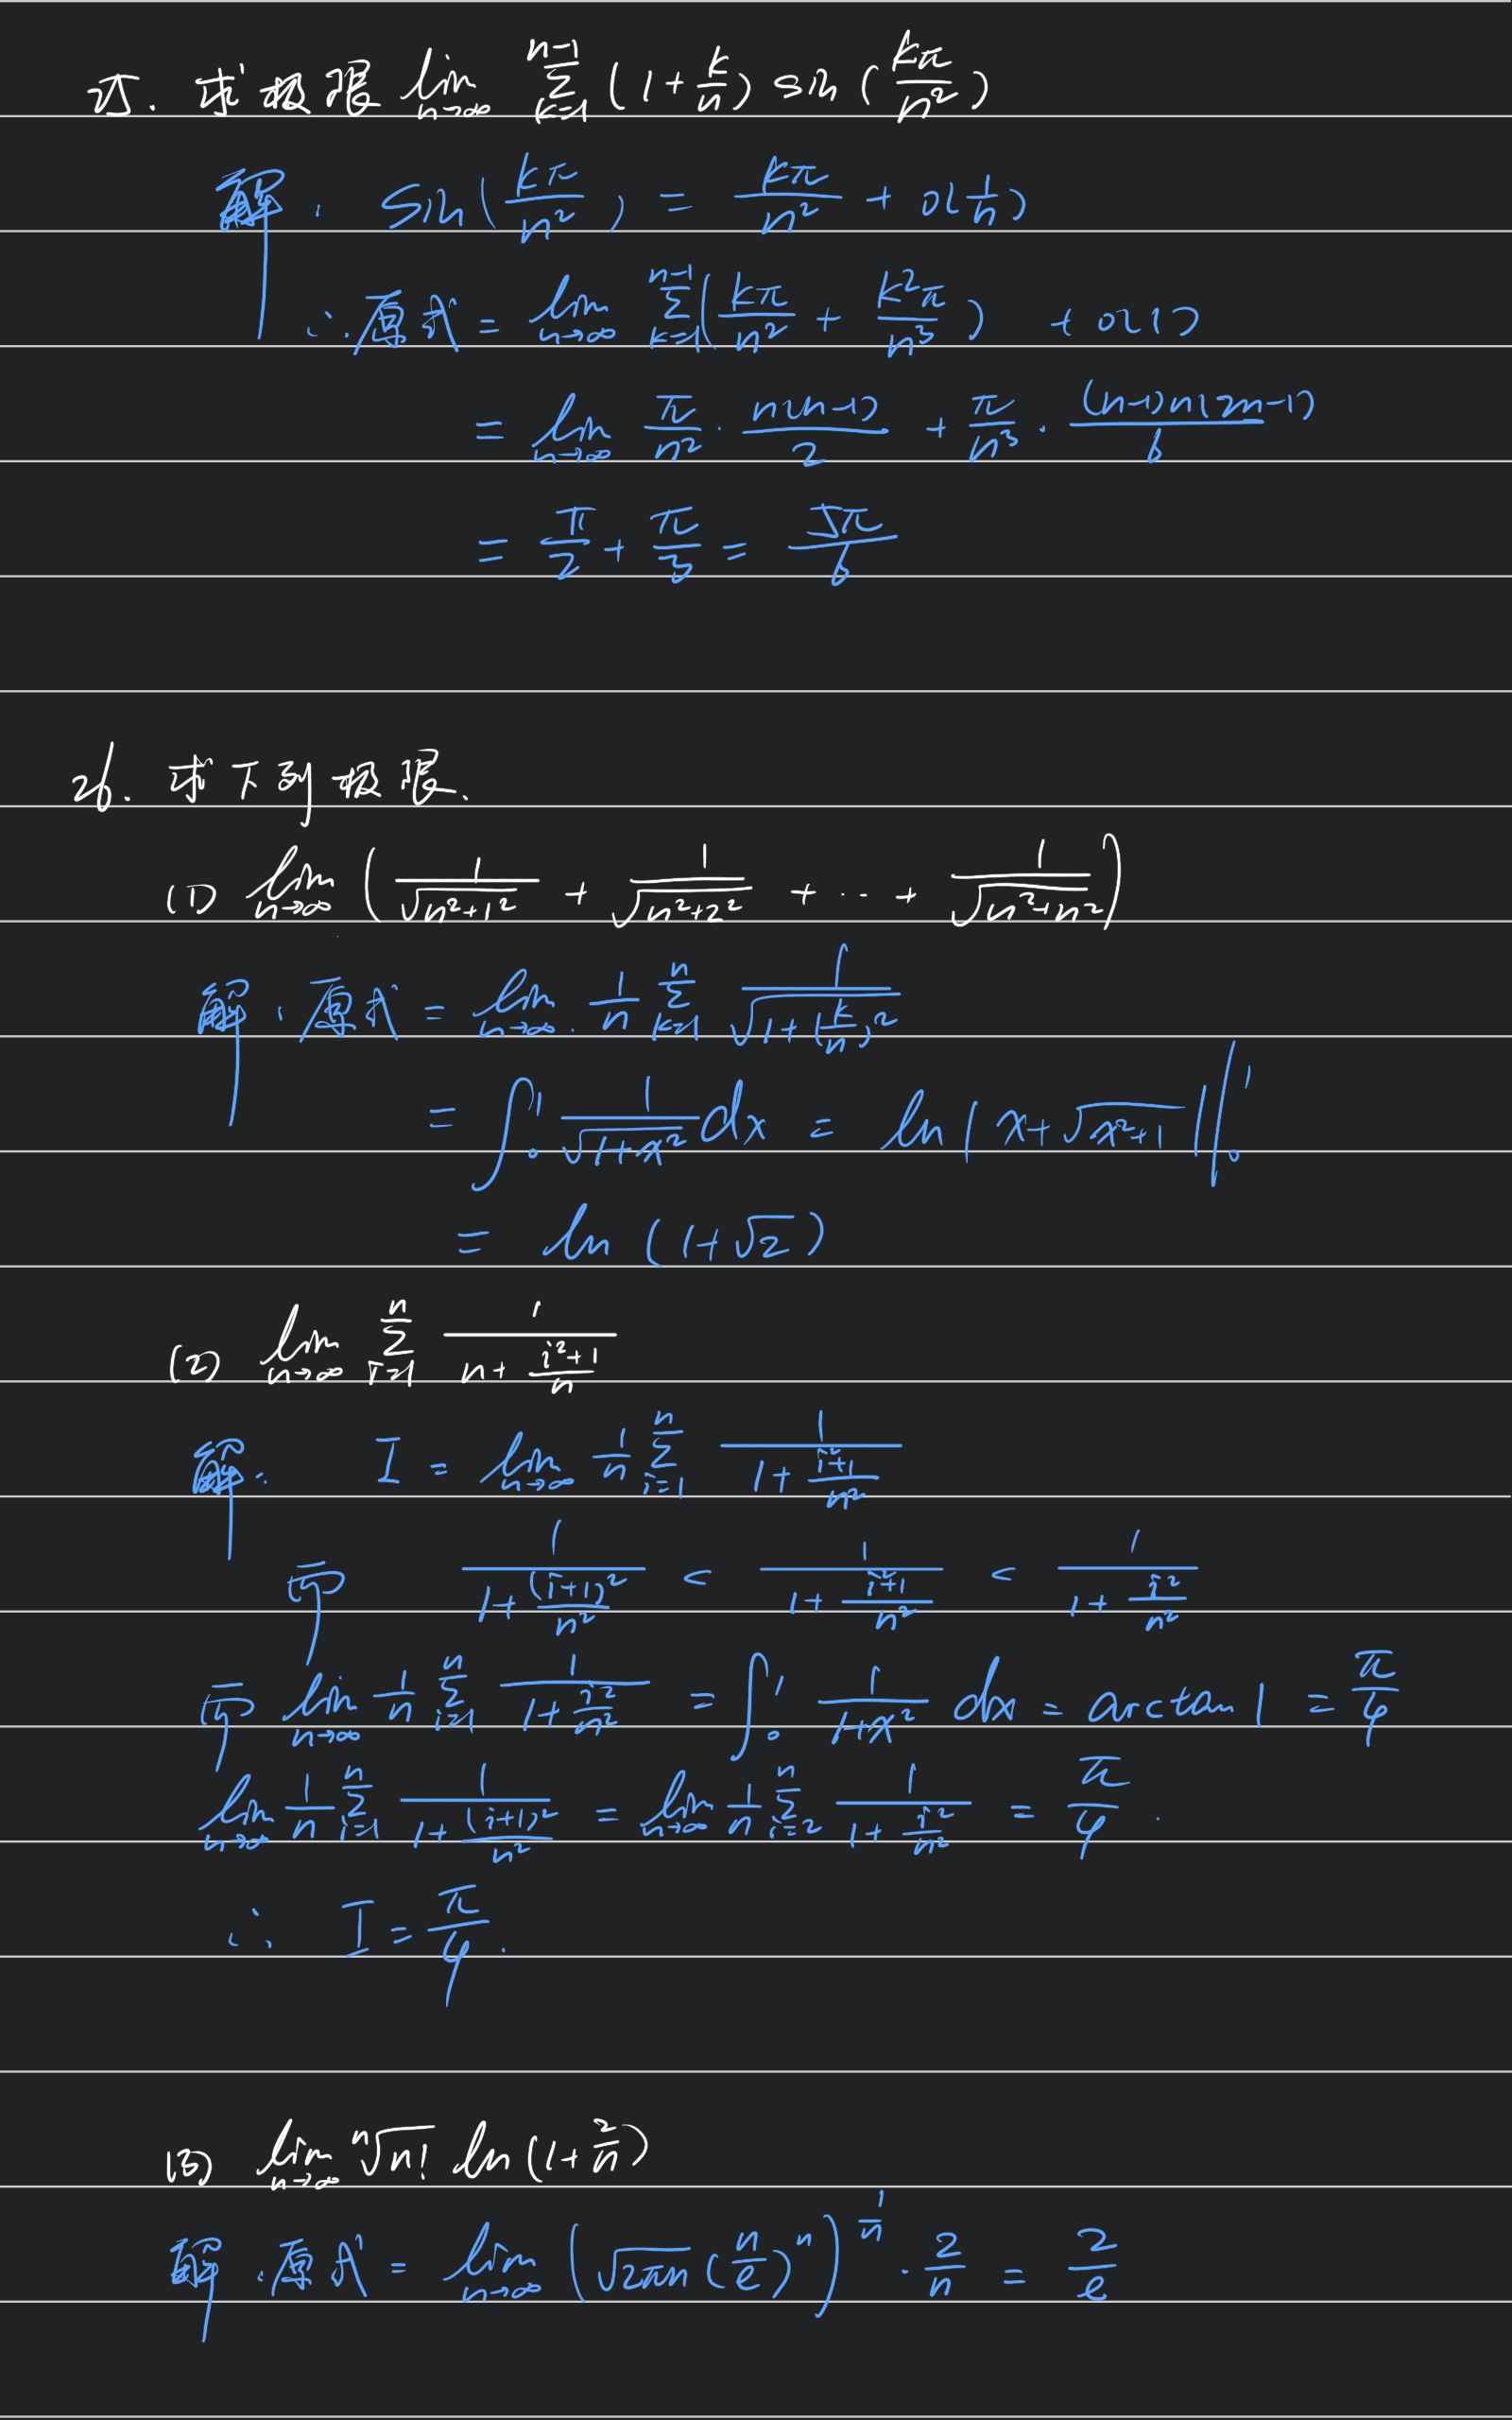 25. 求极限 lim_{n→∞} Σ_{k=1}^{n-1} (1+k/n) sin(kπ/n²)
解: sin(kπ/n²) = kπ/n² + o(1/n)
∴原式 = lim_{n→∞} Σ_{k=1}^{n-1} (kπ/n² + k²π/n³) + o(1)
= lim_{n→∞} π/n² · n(n-1)/2 + π/n³ · (n-1)n(2n-1)/6
= π/2 + π/3 = 5π/6
26. 求下列极限.
(1) lim_{n→∞} (1/√(n²+1²) + 1/√(n²+2²) + ··· + 1/√(n²+n²))
解: 原式 = lim_{n→∞} 1/n Σ_{k=1}^{n} 1/√(1+(k/n)²)
= ∫₀¹ 1/√(1+x²) dx = ln|x+√(x²+1)| |₀¹
= ln(1+√2)
(2) lim_{n→∞} Σ_{i=1}^{n} 1/(n+(i²+1)/n)
解: I = lim_{n→∞} 1/n Σ_{i=1}^{n} 1/(1+(i²+1)/n²)
而 1/(1+(i+1)²/n²) < 1/(1+(i²+1)/n²) < 1/(1+i²/n²)
而 lim_{n→∞} 1/n Σ_{i=1}^{n} 1/(1+i²/n²) = ∫₀¹ 1/(1+x²) dx = arctan 1 = π/4
lim_{n→∞} 1/n Σ_{i=1}^{n} 1/(1+(i+1)²/n²) = lim_{n→∞} 1/n Σ_{i=2}^{n} 1/(1+i²/n²) = π/4.
∴ I = π/4.
(3) lim_{n→∞} ⁿ√n! ln(1+2/n)
解: 原式 = lim_{n→∞} (√(2πn) (n/e)^n)^{1/n} · 2/n = 2/e